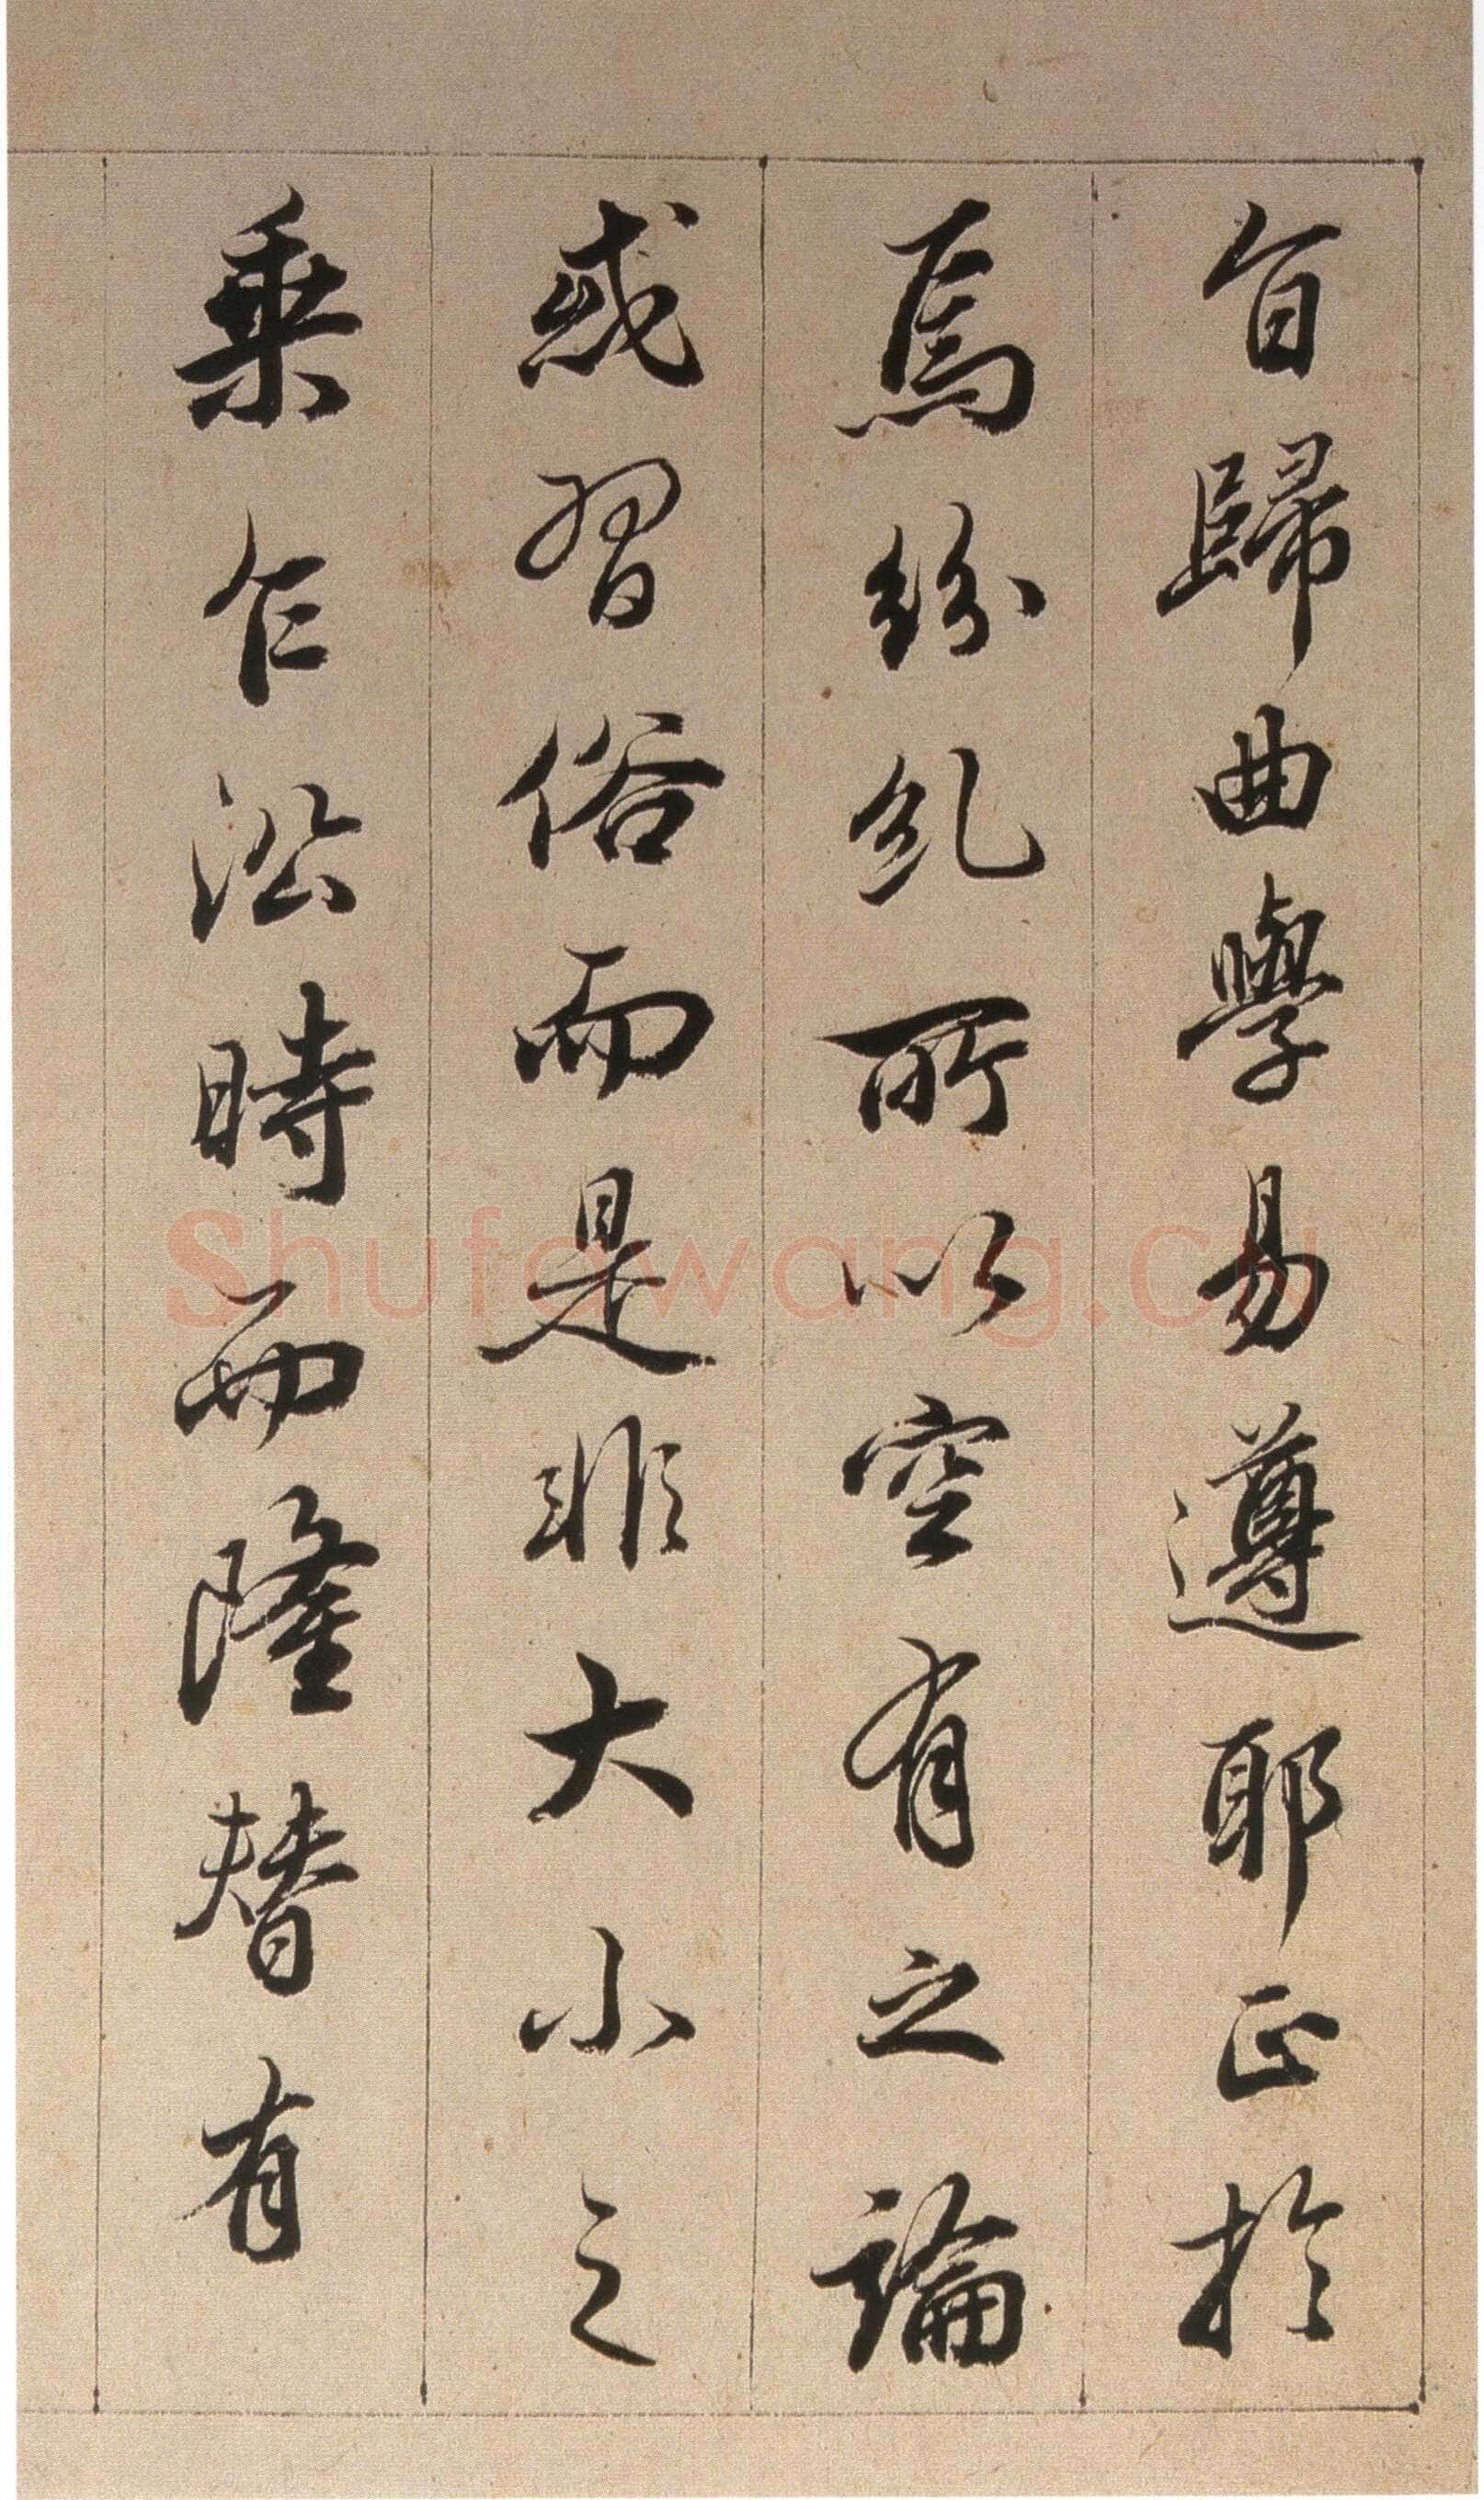 旨歸曲學易遵耶正於
焉紛糺所以空有之論
或習俗而是非大小之
乘乍沿時而隆替有
Shufawang.cn